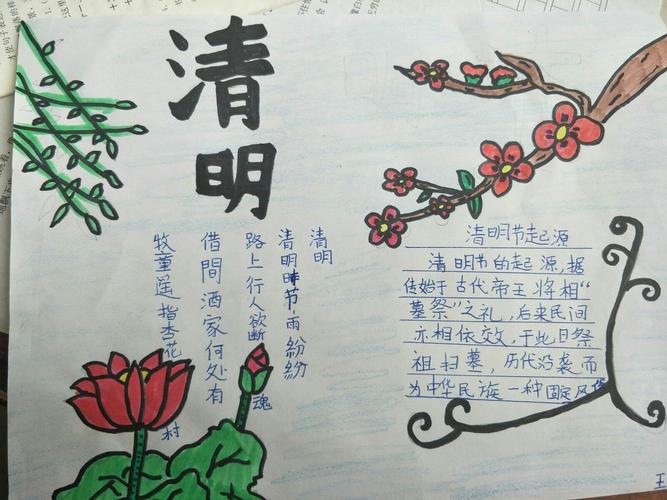 清明
清明
清明時节雨紛紛
路上行人欲断魂
借間酒家何处有
牧童遥指杏花村
清明节起源
清明节的起源,据
传始于古代帝王将相“
墓祭”之礼,后来民间
亦相依效,于此日祭
祖扫墓,历代沿袭而
为中华民族一种固定风俗
王